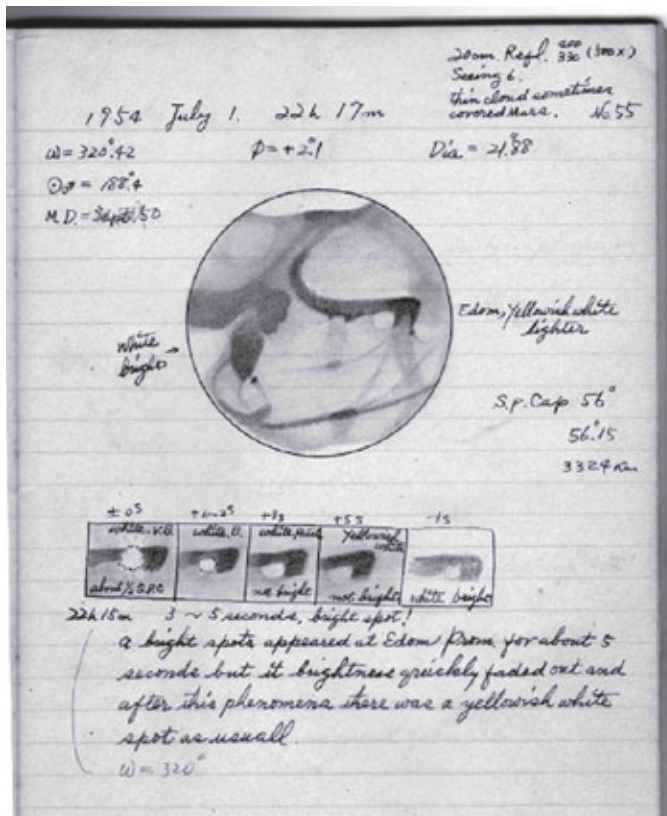 20cm. Refl. 200 330 (300x)
Seeing 6.
thin cloud sometimes
covered Mars. No. 55
1954 July 1. 22h 17m
ω = 320°.42 φ = +2°.1 Dia = 21".88
= 188°.4
M.D. =
White
bright →
Edom, Yellowish white
lighter
S.P. Cap 56°
56°.15
3324 Km
± 0s +1~2s +3s +5s -1s
white. V.B. white, B. white, Yellowish white
about 1/2 S.P.C not bright not bright white bright
22h 15m 3 ~ 5 seconds, bright spot!
a bright spots appeared at Edom Prom. for about 5
seconds but it brightness quickly faded out and
after this phenomena there was a yellowish white
spot as usuall.
ω = 320°